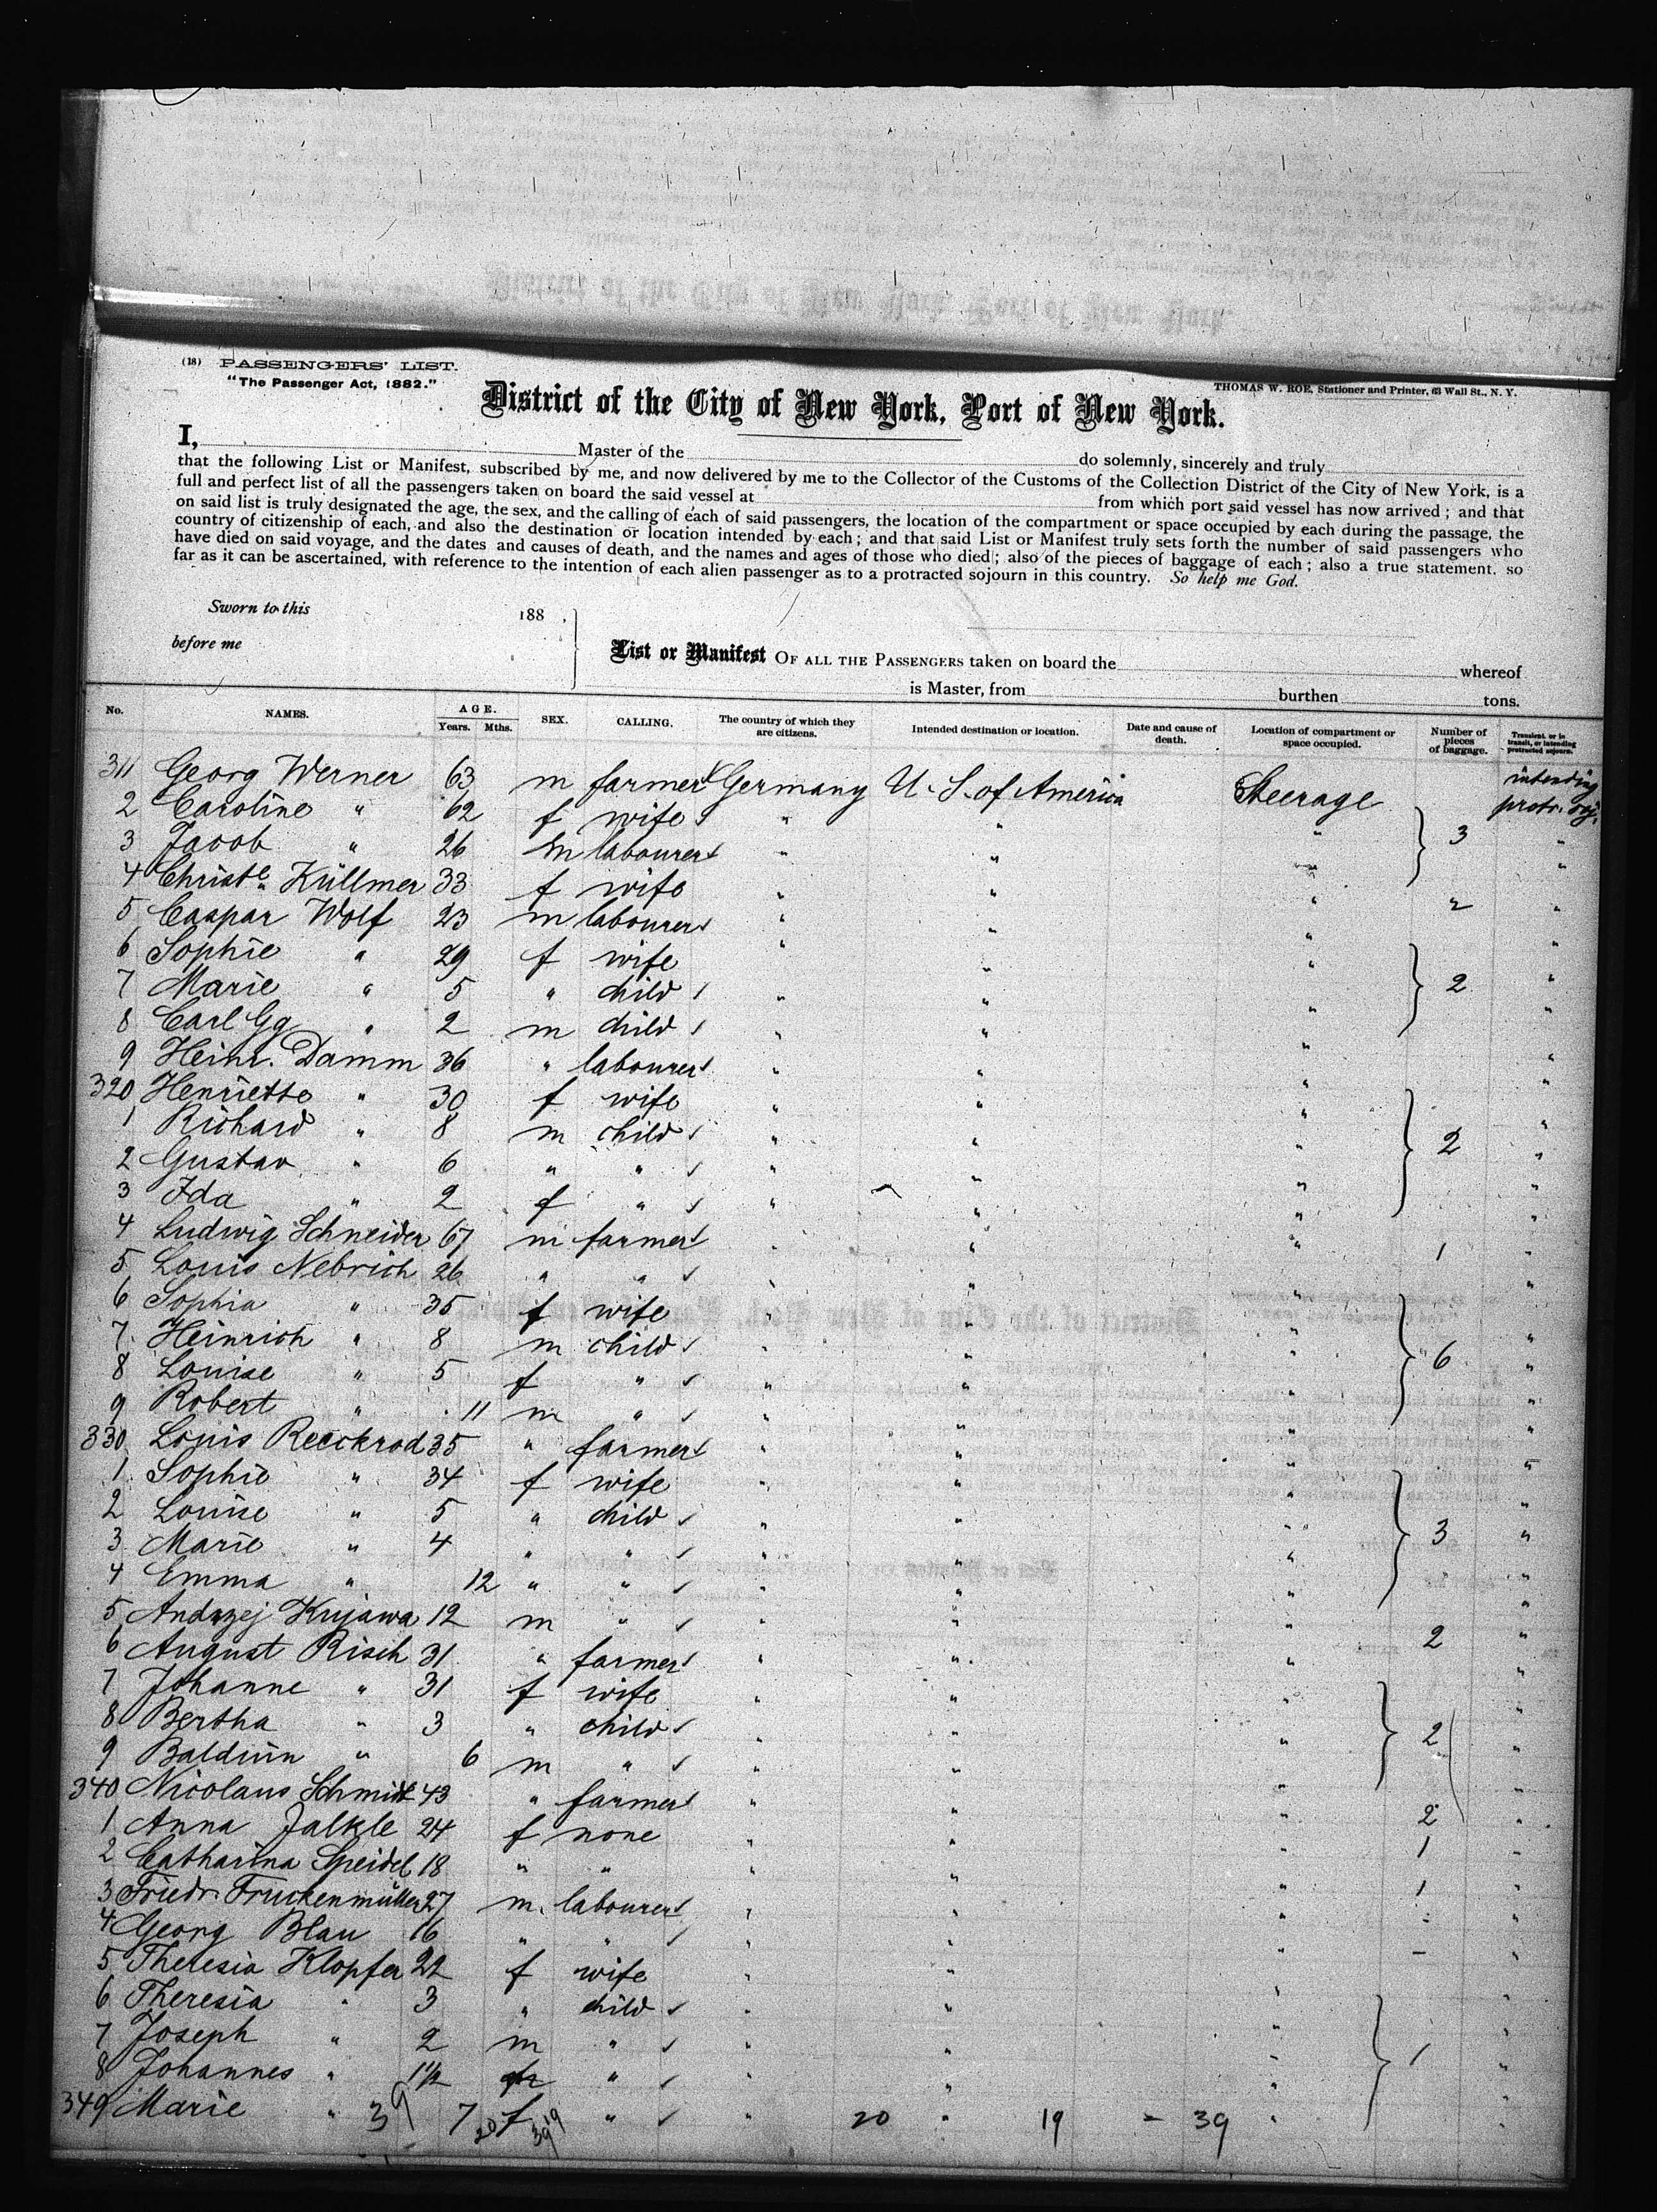 (18) PASSENGERS' LIST.
"The Passenger Act, 1882."
THOMAS W. ROE, Stationer and Printer, 63 Wall St., N. Y.
District of the City of New York, Port of New York.
I, Master of the do solemnly, sincerely and truly
that the following List or Manifest, subscribed by me, and now delivered by me to the Collector of the Customs of the Collection District of the City of New York, is a
full and perfect list of all the passengers taken on board the said vessel at from which port said vessel has now arrived; and that
on said list is truly designated the age, the sex, and the calling of each of said passengers, the location of the compartment or space occupied by each during the passage, the
country of citizenship of each, and also the destination or location intended by each; and that said List or Manifest truly sets forth the number of said passengers who
have died on said voyage, and the dates and causes of death, and the names and ages of those who died; also of the pieces of baggage of each; also a true statement, so
far as it can be ascertained, with reference to the intention of each alien passenger as to a protracted sojourn in this country. So help me God.
Sworn to this 188 ,
before me
List or Manifest OF ALL THE PASSENGERS taken on board the whereof
is Master, from burthen tons.
No. NAMES. AGE. Years. Mths. SEX. CALLING. The country of which they are citizens. Intended destination or location. Date and cause of death. Location of compartment or space occupied. Number of pieces of baggage. Transient, or in transit, or intending protracted sojourn.
311 Georg Werner 63 m farmer Germany U. S. of America Steerage intending protr. soj.
2 Caroline " 62 f wife " " " 3 "
3 Jacob " 26 m labourer " " " "
4 Christe Küllmer 33 f wife " " " 2 "
5 Caspar Wolf 23 m labourer " " " "
6 Sophie " 29 f wife " " " 2 "
7 Marie " 5 " child " " " "
8 Carl Gg " 2 m child " " " "
9 Heinr. Damm 36 " labourer " " " "
320 Henriette " 30 f wife " " " "
1 Richard " 8 m child " " " 2 "
2 Gustav " 6 " " " " " "
3 Ida " 2 f " " " " "
4 Ludwig Schneider 67 m farmer " " " 1 "
5 Louis Nebrich 26 " " " " " "
6 Sophia " 35 f wife " " " "
7 Heinrich " 8 m child " " " 6 "
8 Louise " 5 f " " " " "
9 Robert " 11 m " " " " "
330 Louis Reeckrod 35 " farmer " " " "
1 Sophie " 34 f wife " " " "
2 Louise " 5 " child " " " 3 "
3 Marie " 4 " " " " " "
4 Emma " 12 " " " " " "
5 Andrzej Kujawa 12 m " " " " 2 "
6 August Risch 31 " farmer " " " "
7 Johanne " 31 f wife " " " "
8 Bertha " 3 " child " " " 2 "
9 Balduin " 6 m " " " " "
340 Nicolaus Schmidt 43 " farmer " " " 2 "
1 Anna Jalkle 24 f none " " " 1 "
2 Catharina Speidel 18 " " " " " 1 "
3 Friedr. Truckenmüller 27 m. labourer " " " "
4 Georg Blau 16 " " " " " "
5 Theresia Klopfer 22 f wife " " " "
6 Theresia " 3 " child " " " "
7 Joseph " 2 m " " " " 1 "
8 Johannes " 1½ " " " " "
349 Marie " 7 f " " " " "
39 20 19 39 20 19 - 39